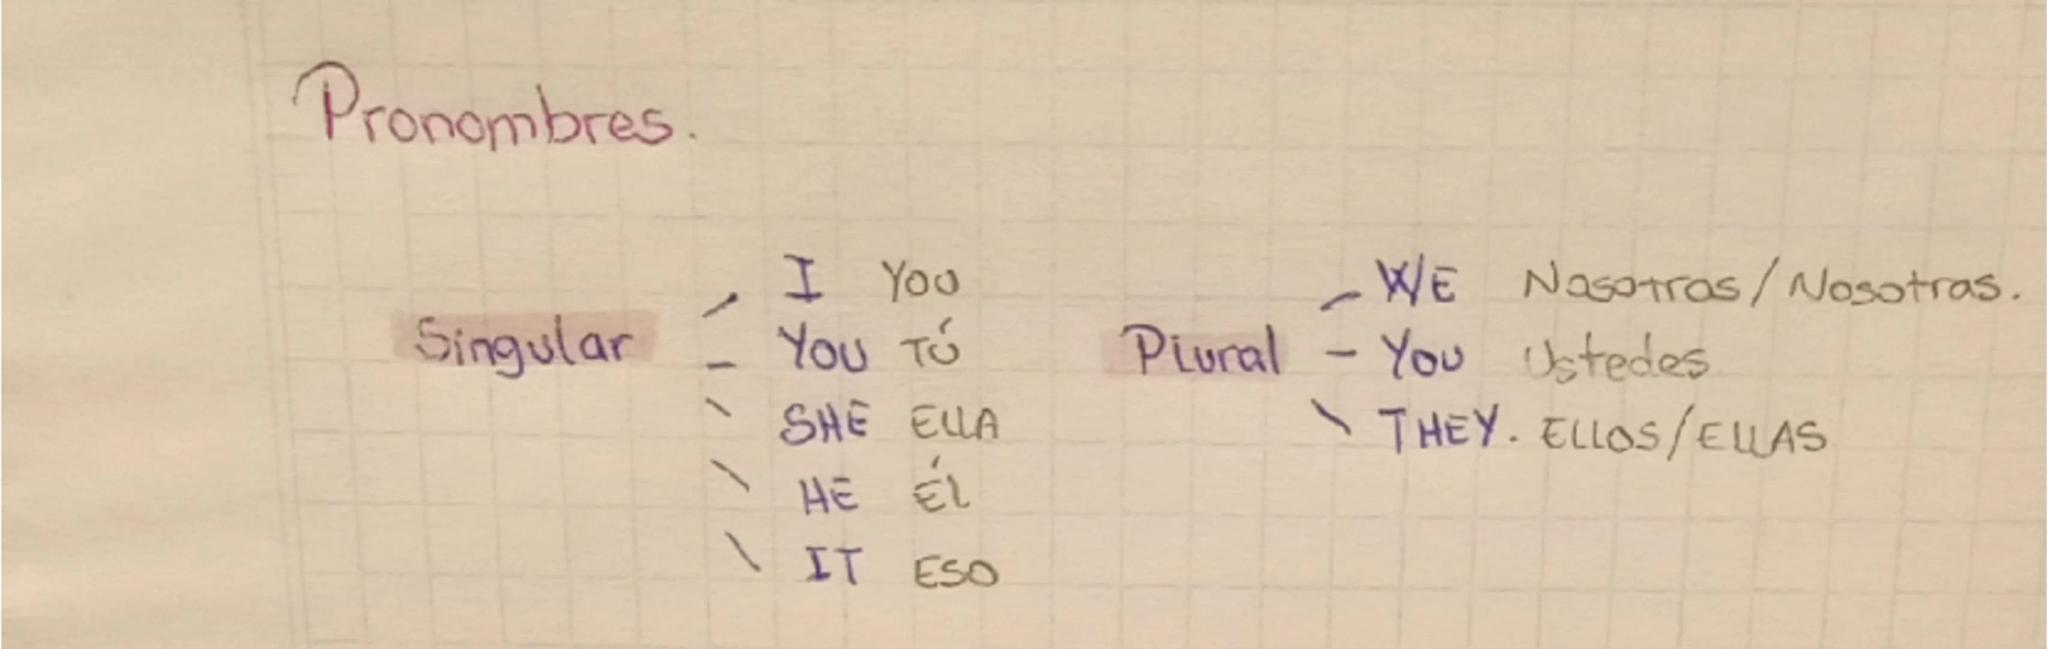 Pronombres.
Singular
I You
You Tú
SHE ELLA
HE Él
IT ESO
Plural
WE Nosotras/Nosotras.
You Ustedes
THEY. ELLOS/ELLAS